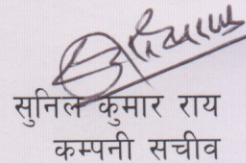 सुनिल कुमार राय
कम्पनी सचीव